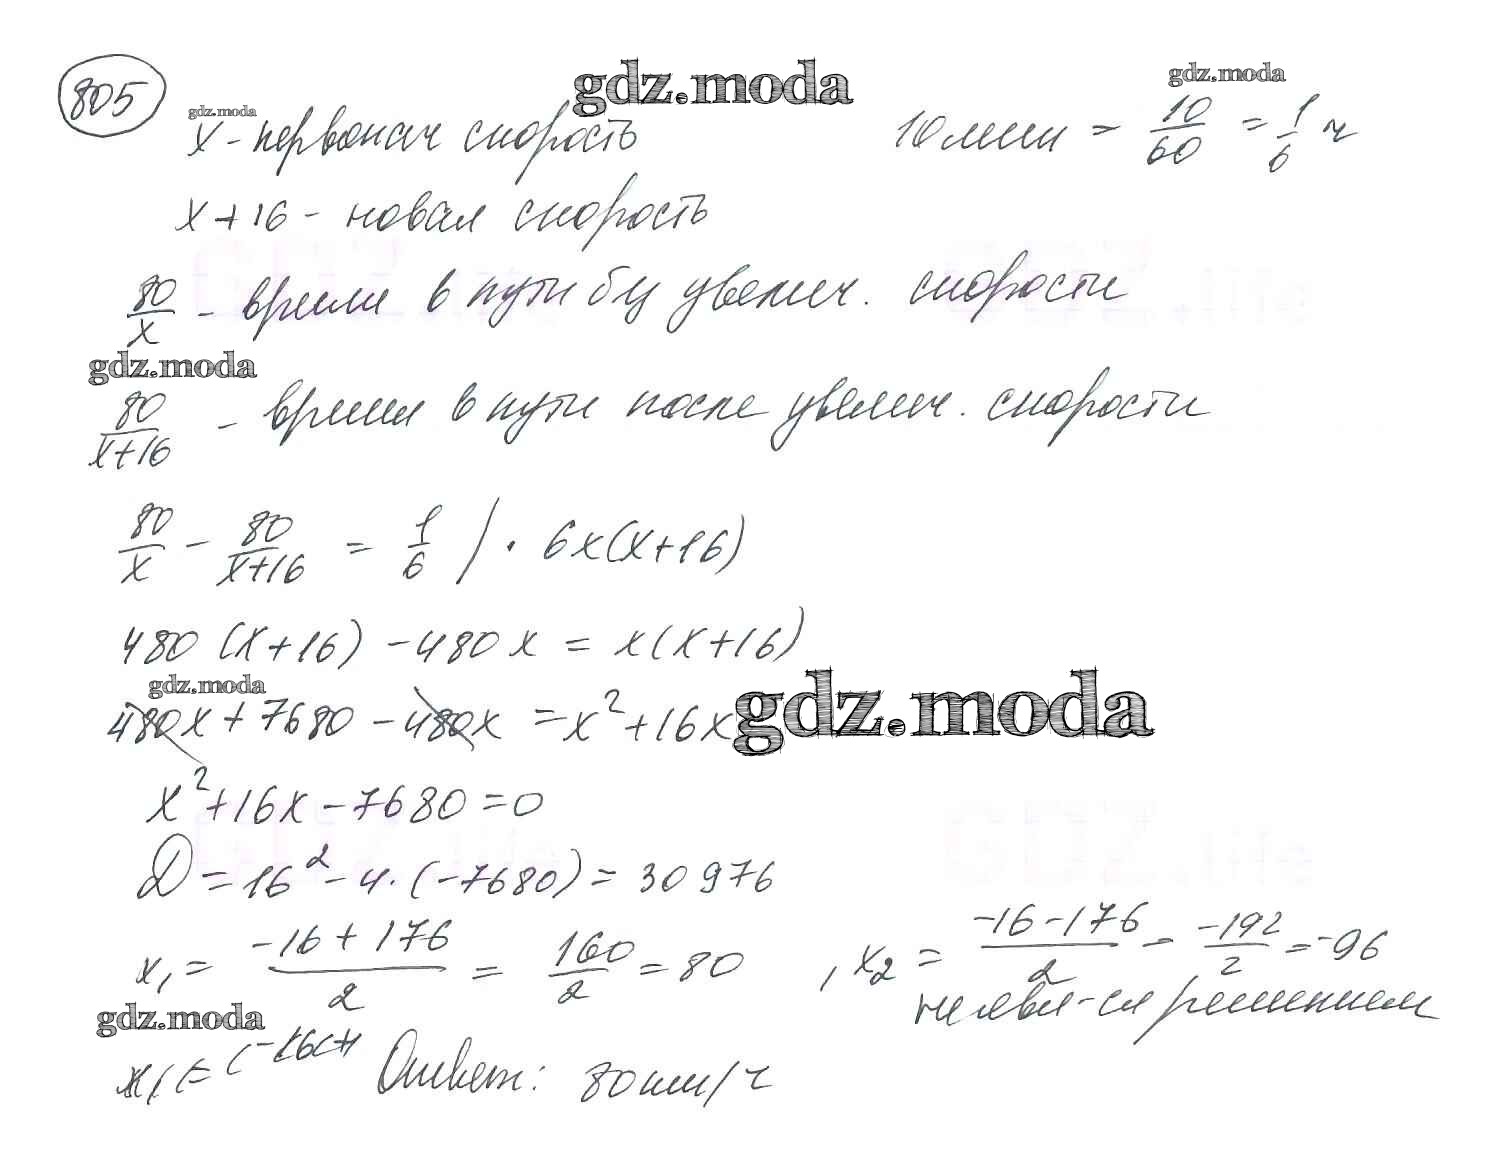 805
gdz.moda
gdz.moda
gdz.moda
x - первонач скорость
10 мин = 10/60 = 1/6 ч
x + 16 - новая скорость
GDZ.life GDZ.life
80/x - время в пути бу увелич. скорости
gdz.moda
80/(x+16) - время в пути после увелич. скорости
80/x - 80/(x+16) = 1/6 / · 6x(x+16)
480 (x+16) - 480x = x(x+16)
gdz.moda
gdz.moda
480x + 7680 - 480x = x² + 16x
x² + 16x - 7680 = 0
GDZ.life GDZ.life
D = 16² - 4 · (-7680) = 30976
x₁ = (-16 + 176)/2 = 160/2 = 80 , x₂ = (-16 - 176)/2 = -192/2 = -96
не явл-ся решением
gdz.moda
Ответ: 80 км/ч